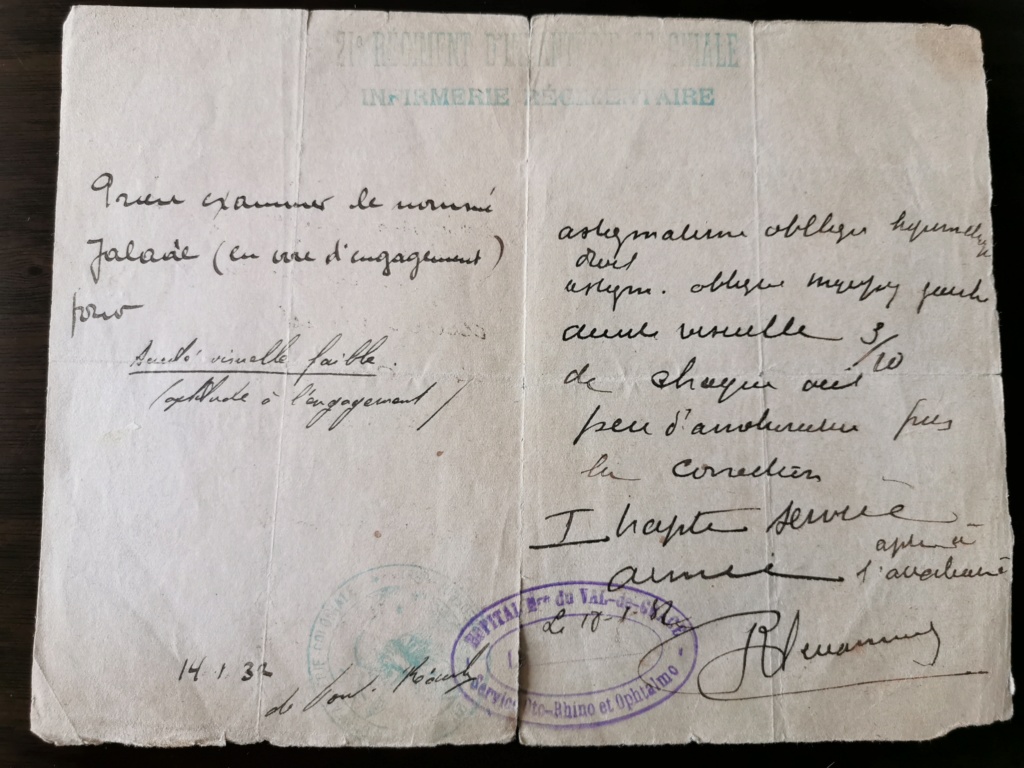 21e RÉGIMENT D'INFANTERIE COLONIALE
INFIRMERIE RÉGIMENTAIRE
Prière examiner le nommé
Jalade (en voie d'engagement)
pour
Acuité visuelle faible.
(aptitude à l'engagement)
14.1.32
de
astigmatisme oblique
droit
astigm. oblique gauche
acuité visuelle 3/10
de chaque œil
peu d'amélioration par
la correction
Inapte service
armé apte à
l'auxiliaire
Le 18-1-32
HOPITAL Mre du VAL-de-GRACE
Service Oto-Rhino et Ophtalmo